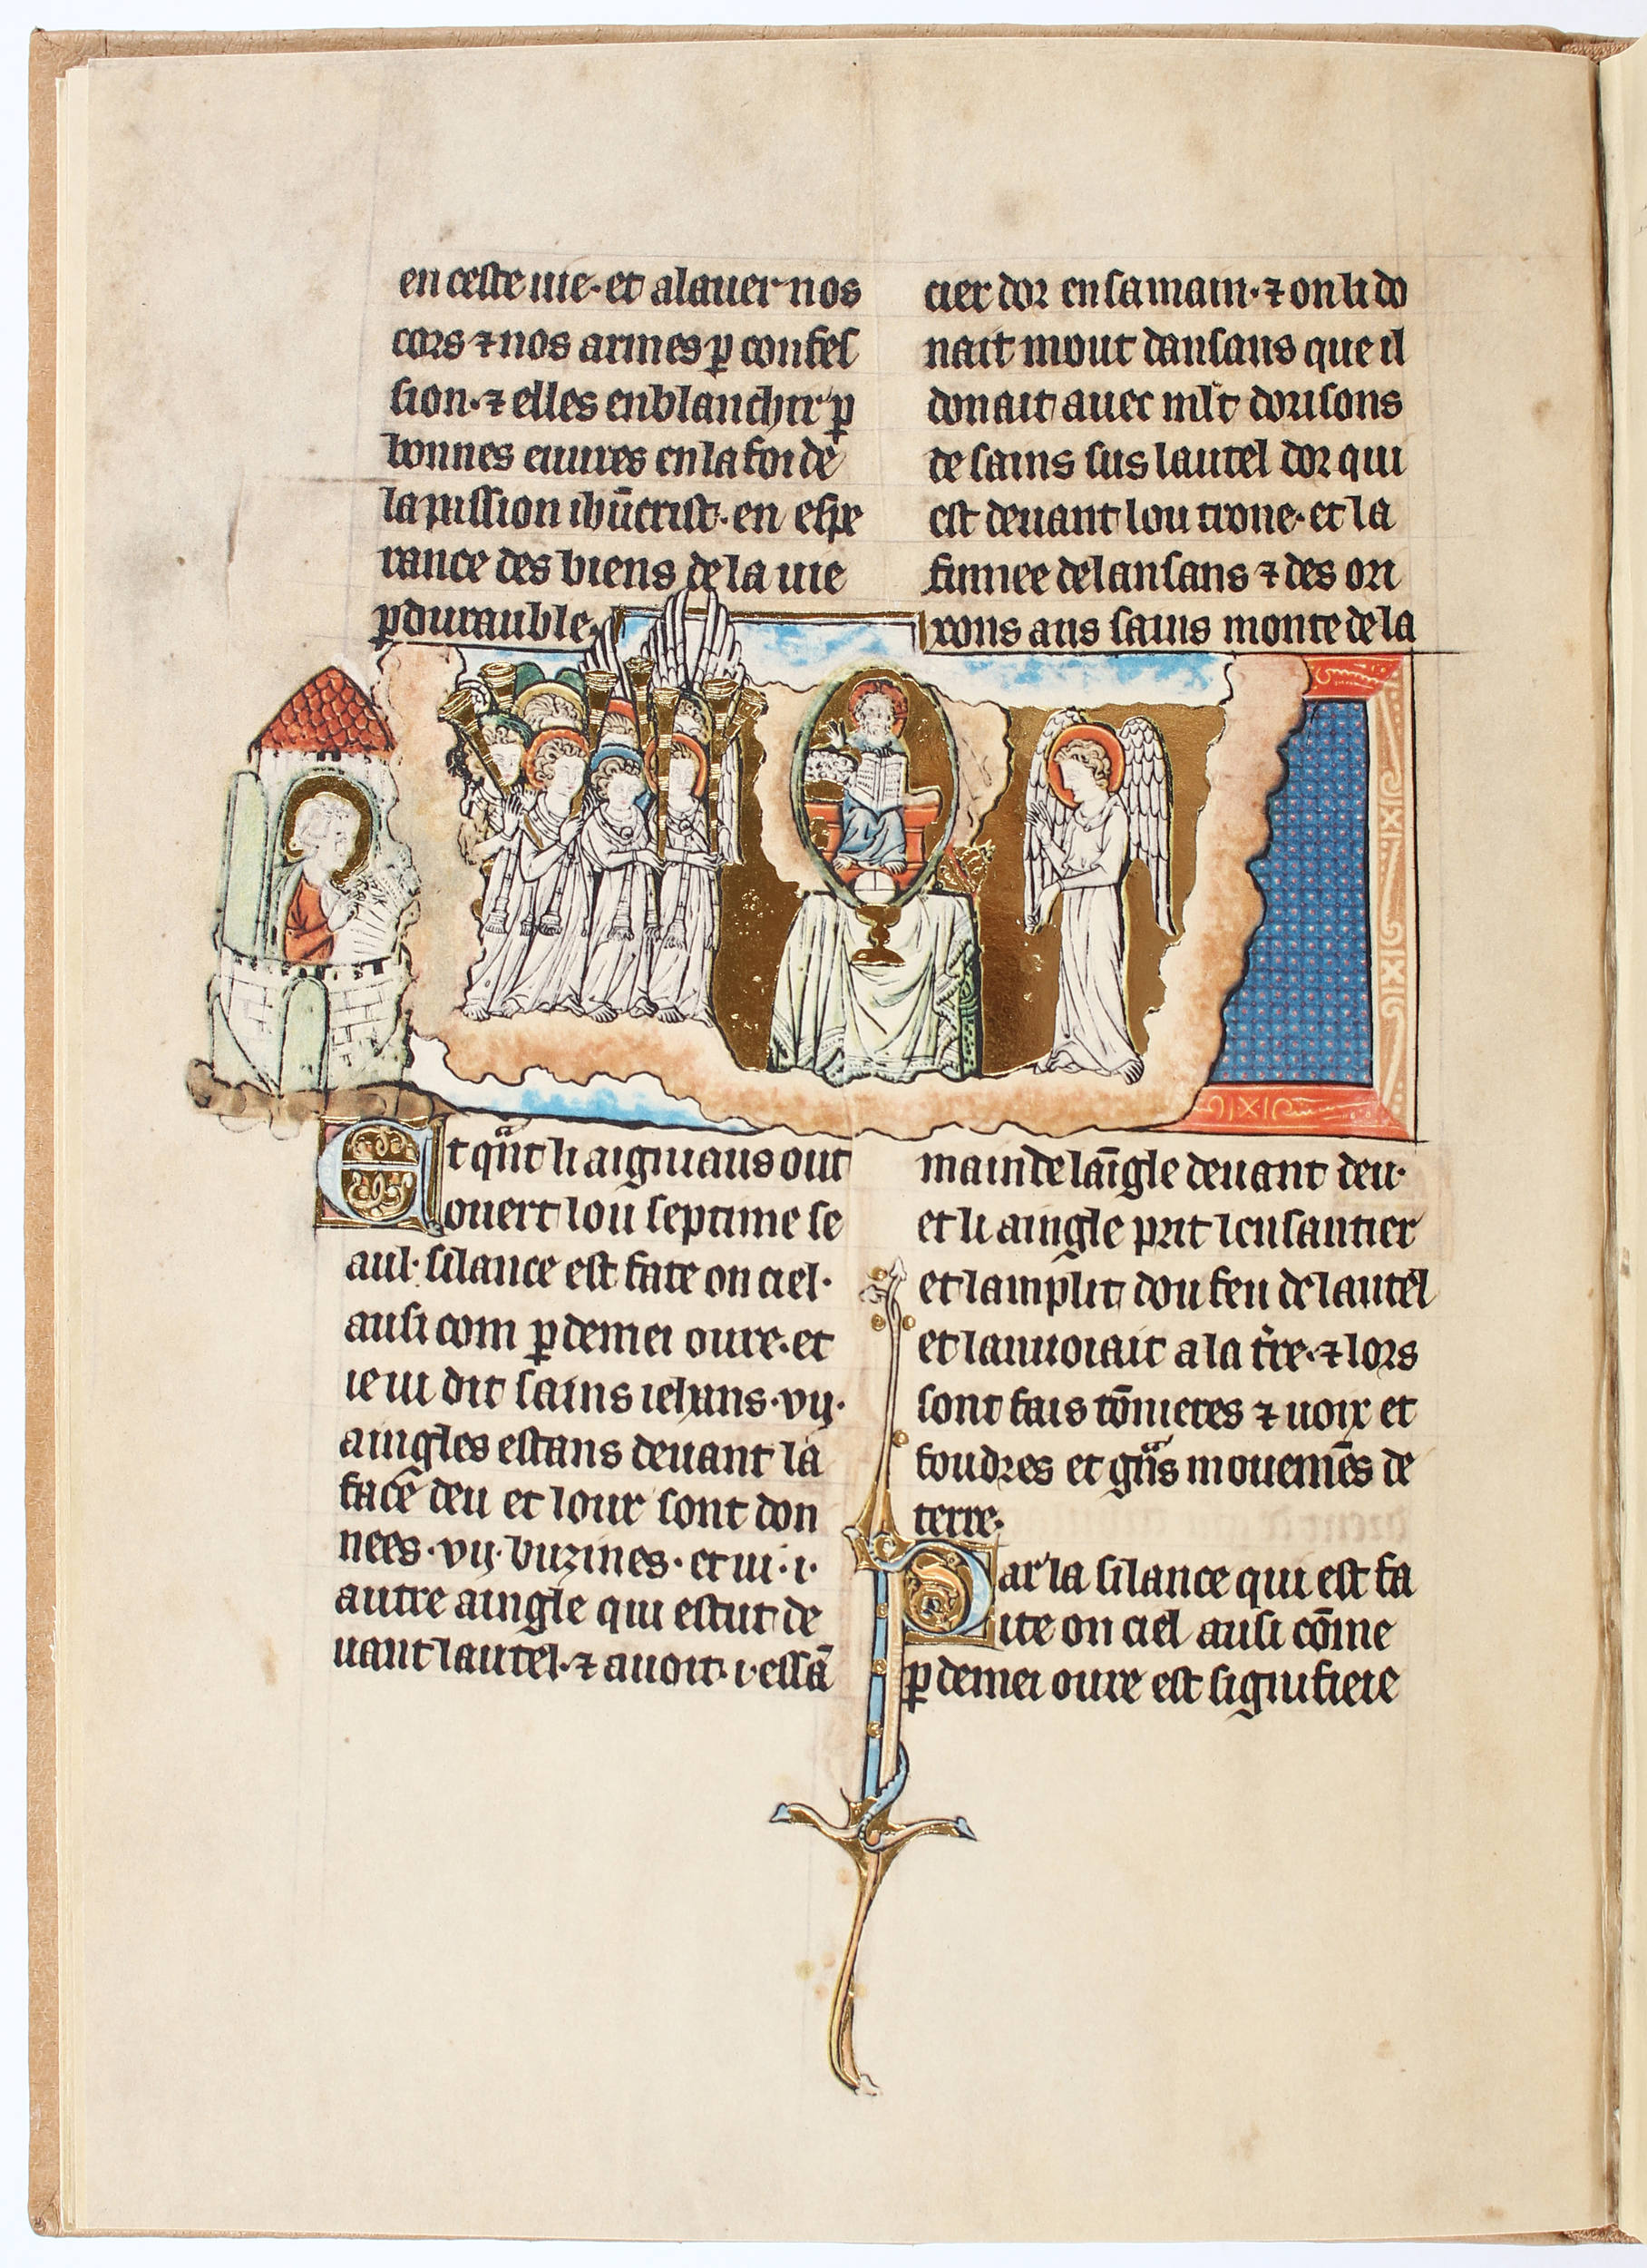 en ceste uie· et a lauer nos
cors ⁊ nos armes ꝑ confes
sion·⁊ elles enblanchir ꝑ
bonnes euures en la foi de
la pission ihūcrist· en espe
rance des biens de la uie
ꝑdurauble·
Et qⁿt li aigniaus out
ouert lou septime se
aul· silance est fate on ciel·
ausi com ꝑ demei oure· et
ie ui dit sains iehans·vij·
aingles estans deuant la
face deu et lour sont don
nees·vij·buzines· et ui·i·
autre aingle qui estut de
uant lautel·⁊ auoit·i·essā
cier dor en sa main·⁊ on li do
nait mout dansans que il
donait auec mlt dorisons
de sains sus lautel dor qui
est deuant lou trone· et la
fumee de lansans ⁊ des ori
xons aus sains monte de la
main de lāigle deuant deu·
et li aingle prit lensantier
et lamplit dou feu de lautel
et lauuoiait a la tr̄e·⁊ lors
sont fais tōnieres ⁊ uoix et
foudres et gⁿs mouemēs de
terre·
Par la silance qui est fa
ite on ciel ausi cōme
ꝑ demei oure est signifieie